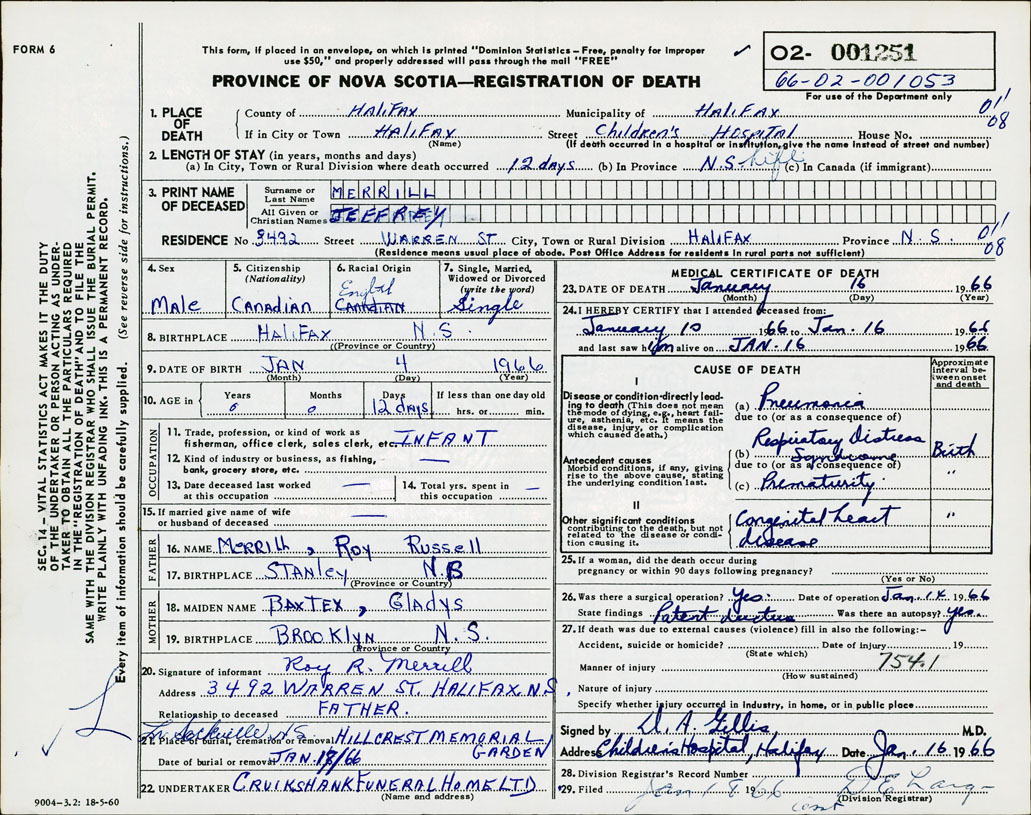 FORM 6
This form, if placed in an envelope, on which is printed "Dominion Statistics – Free, penalty for improper
use $50," and properly addressed will pass through the mail "FREE"
PROVINCE OF NOVA SCOTIA—REGISTRATION OF DEATH
02- 001251
66-02-001053
For use of the Department only
1. PLACE OF DEATH
County of HALIFAX Municipality of HALIFAX 01/08
If in City or Town HALIFAX Street Children's HOSPITAL House No.
(Name) (If death occurred in a hospital or institution, give the name instead of street and number)
2. LENGTH OF STAY (in years, months and days)
(a) In City, Town or Rural Division where death occurred 12 days (b) In Province N.S. life (c) In Canada (if immigrant)
3. PRINT NAME OF DECEASED
Surname or Last Name MERRILL
All Given or Christian Names JEFFREY
RESIDENCE No 3492 Street WARREN ST City, Town or Rural Division HALIFAX Province N.S. 01/08
(Residence means usual place of abode. Post Office Address for residents in rural parts not sufficient)
4. Sex Male
5. Citizenship (Nationality) Canadian
6. Racial Origin English Canadian
7. Single, Married, Widowed or Divorced (write the word) Single
8. BIRTHPLACE HALIFAX N.S.
(Province or Country)
9. DATE OF BIRTH JAN 4 1966
(Month) (Day) (Year)
10. AGE in Years 0 Months 0 Days 12 days If less than one day old hrs. or min.
OCCUPATION
11. Trade, profession, or kind of work as
fisherman, office clerk, sales clerk, etc. INFANT
12. Kind of industry or business, as fishing,
bank, grocery store, etc. —
13. Date deceased last worked
at this occupation —
14. Total yrs. spent in
this occupation —
15. If married give name of wife
or husband of deceased —
FATHER
16. NAME MERRILL, ROY Russell
17. BIRTHPLACE STANLEY N.B
(Province or Country)
MOTHER
18. MAIDEN NAME BAXTEX, GLADYS
19. BIRTHPLACE BROOKLYN N.S.
(Province or Country)
20. Signature of informant Roy R. Merrill
Address 3492 WARREN ST. HALIFAX N.S.
Relationship to deceased FATHER.
Sackville N.S.
21. Place of burial, cremation or removal HILLCREST MEMORIAL GARDEN
Date of burial or removal JAN. 18/66
22. UNDERTAKER CRUIKSHANK FUNERAL HOME LTD
(Name and address)
9004—3.2: 18-5-60
MEDICAL CERTIFICATE OF DEATH
23. DATE OF DEATH January 16 1966
(Month) (Day) (Year)
24. I HEREBY CERTIFY that I attended deceased from:
January 10 1966 to Jan. 16 1966
and last saw him alive on JAN. 16 1966
CAUSE OF DEATH
Approximate interval between onset and death
I
Disease or condition directly leading to death (This does not mean the mode of dying, e.g., heart failure, asthenia, etc. It means the disease, injury, or complication which caused death.)
(a) Pneumonia
due to (or as a consequence of)
Antecedent causes
Morbid conditions, if any, giving rise to the above cause, stating the underlying condition last.
(b) Respiratory Distress Syndrome Birth
due to (or as a consequence of)
(c) Prematurity "
II
Other significant conditions
contributing to the death, but not related to the disease or condition causing it.
Congenital heart disease "
25. If a woman, did the death occur during
pregnancy or within 90 days following pregnancy?
(Yes or No)
26. Was there a surgical operation? Yes. Date of operation Jan. 14 1966
State findings Patent ductus Was there an autopsy? yes.
27. If death was due to external causes (violence) fill in also the following:–
Accident, suicide or homicide? Date of injury 19
(State which) 754.1
Manner of injury
(How sustained)
Nature of injury
Specify whether injury occurred in industry, in home, or in public place
Signed by D. A. Gillis M.D.
Address Children's Hospital, Halifax Date Jan. 16 1966
28. Division Registrar's Record Number
29. Filed Jan 18 1966
(Division Registrar)
SEC. 14 – VITAL STATISTICS ACT MAKES IT THE DUTY
OF THE UNDERTAKER OR PERSON ACTING AS UNDER-
TAKER TO OBTAIN ALL THE PARTICULARS REQUIRED
IN THE "REGISTRATION OF DEATH" AND TO FILE THE
SAME WITH THE DIVISION REGISTRAR WHO SHALL ISSUE THE BURIAL PERMIT.
WRITE PLAINLY WITH UNFADING INK. THIS IS A PERMANENT RECORD.
Every item of information should be carefully supplied. (See reverse side for instructions.)